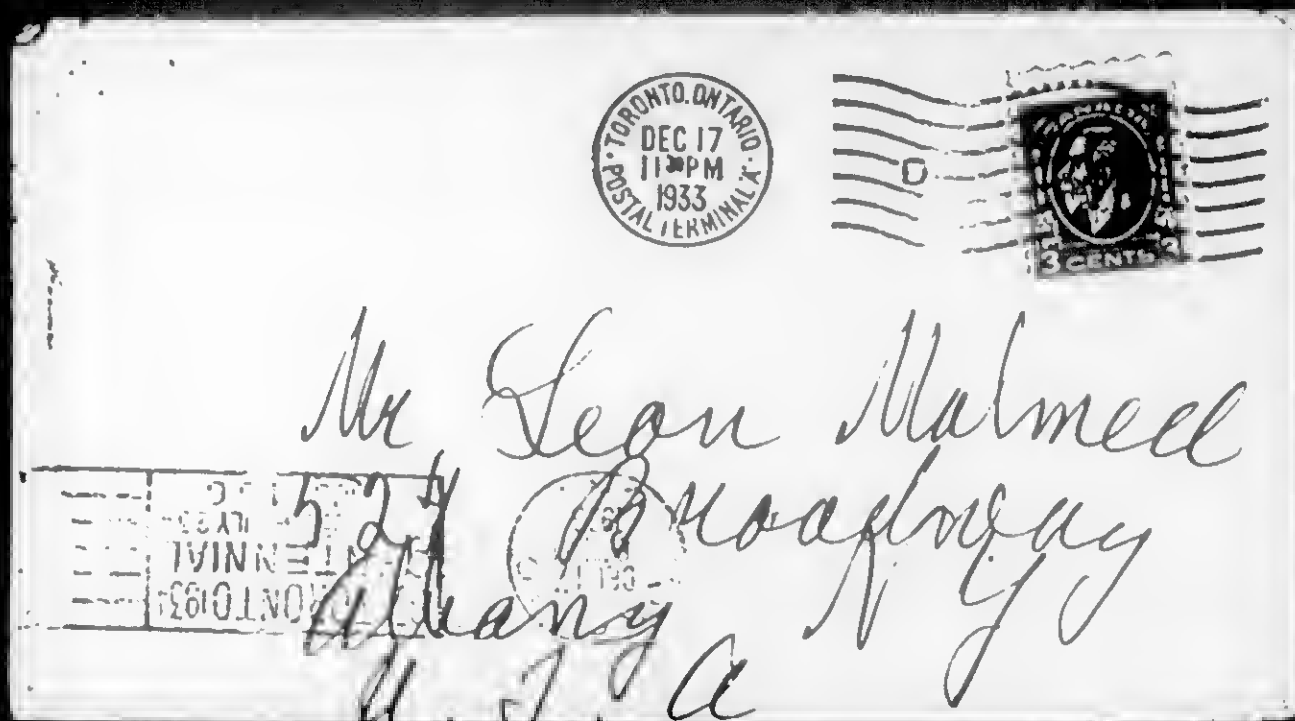 TORONTO, ONTARIO
DEC 17
11 30 PM
1933
POSTAL TERMINAL A
D
CANADA
3 CENTS 3
Mr Leon Malmed
524 Broadway
Albany N Y
U. S. A